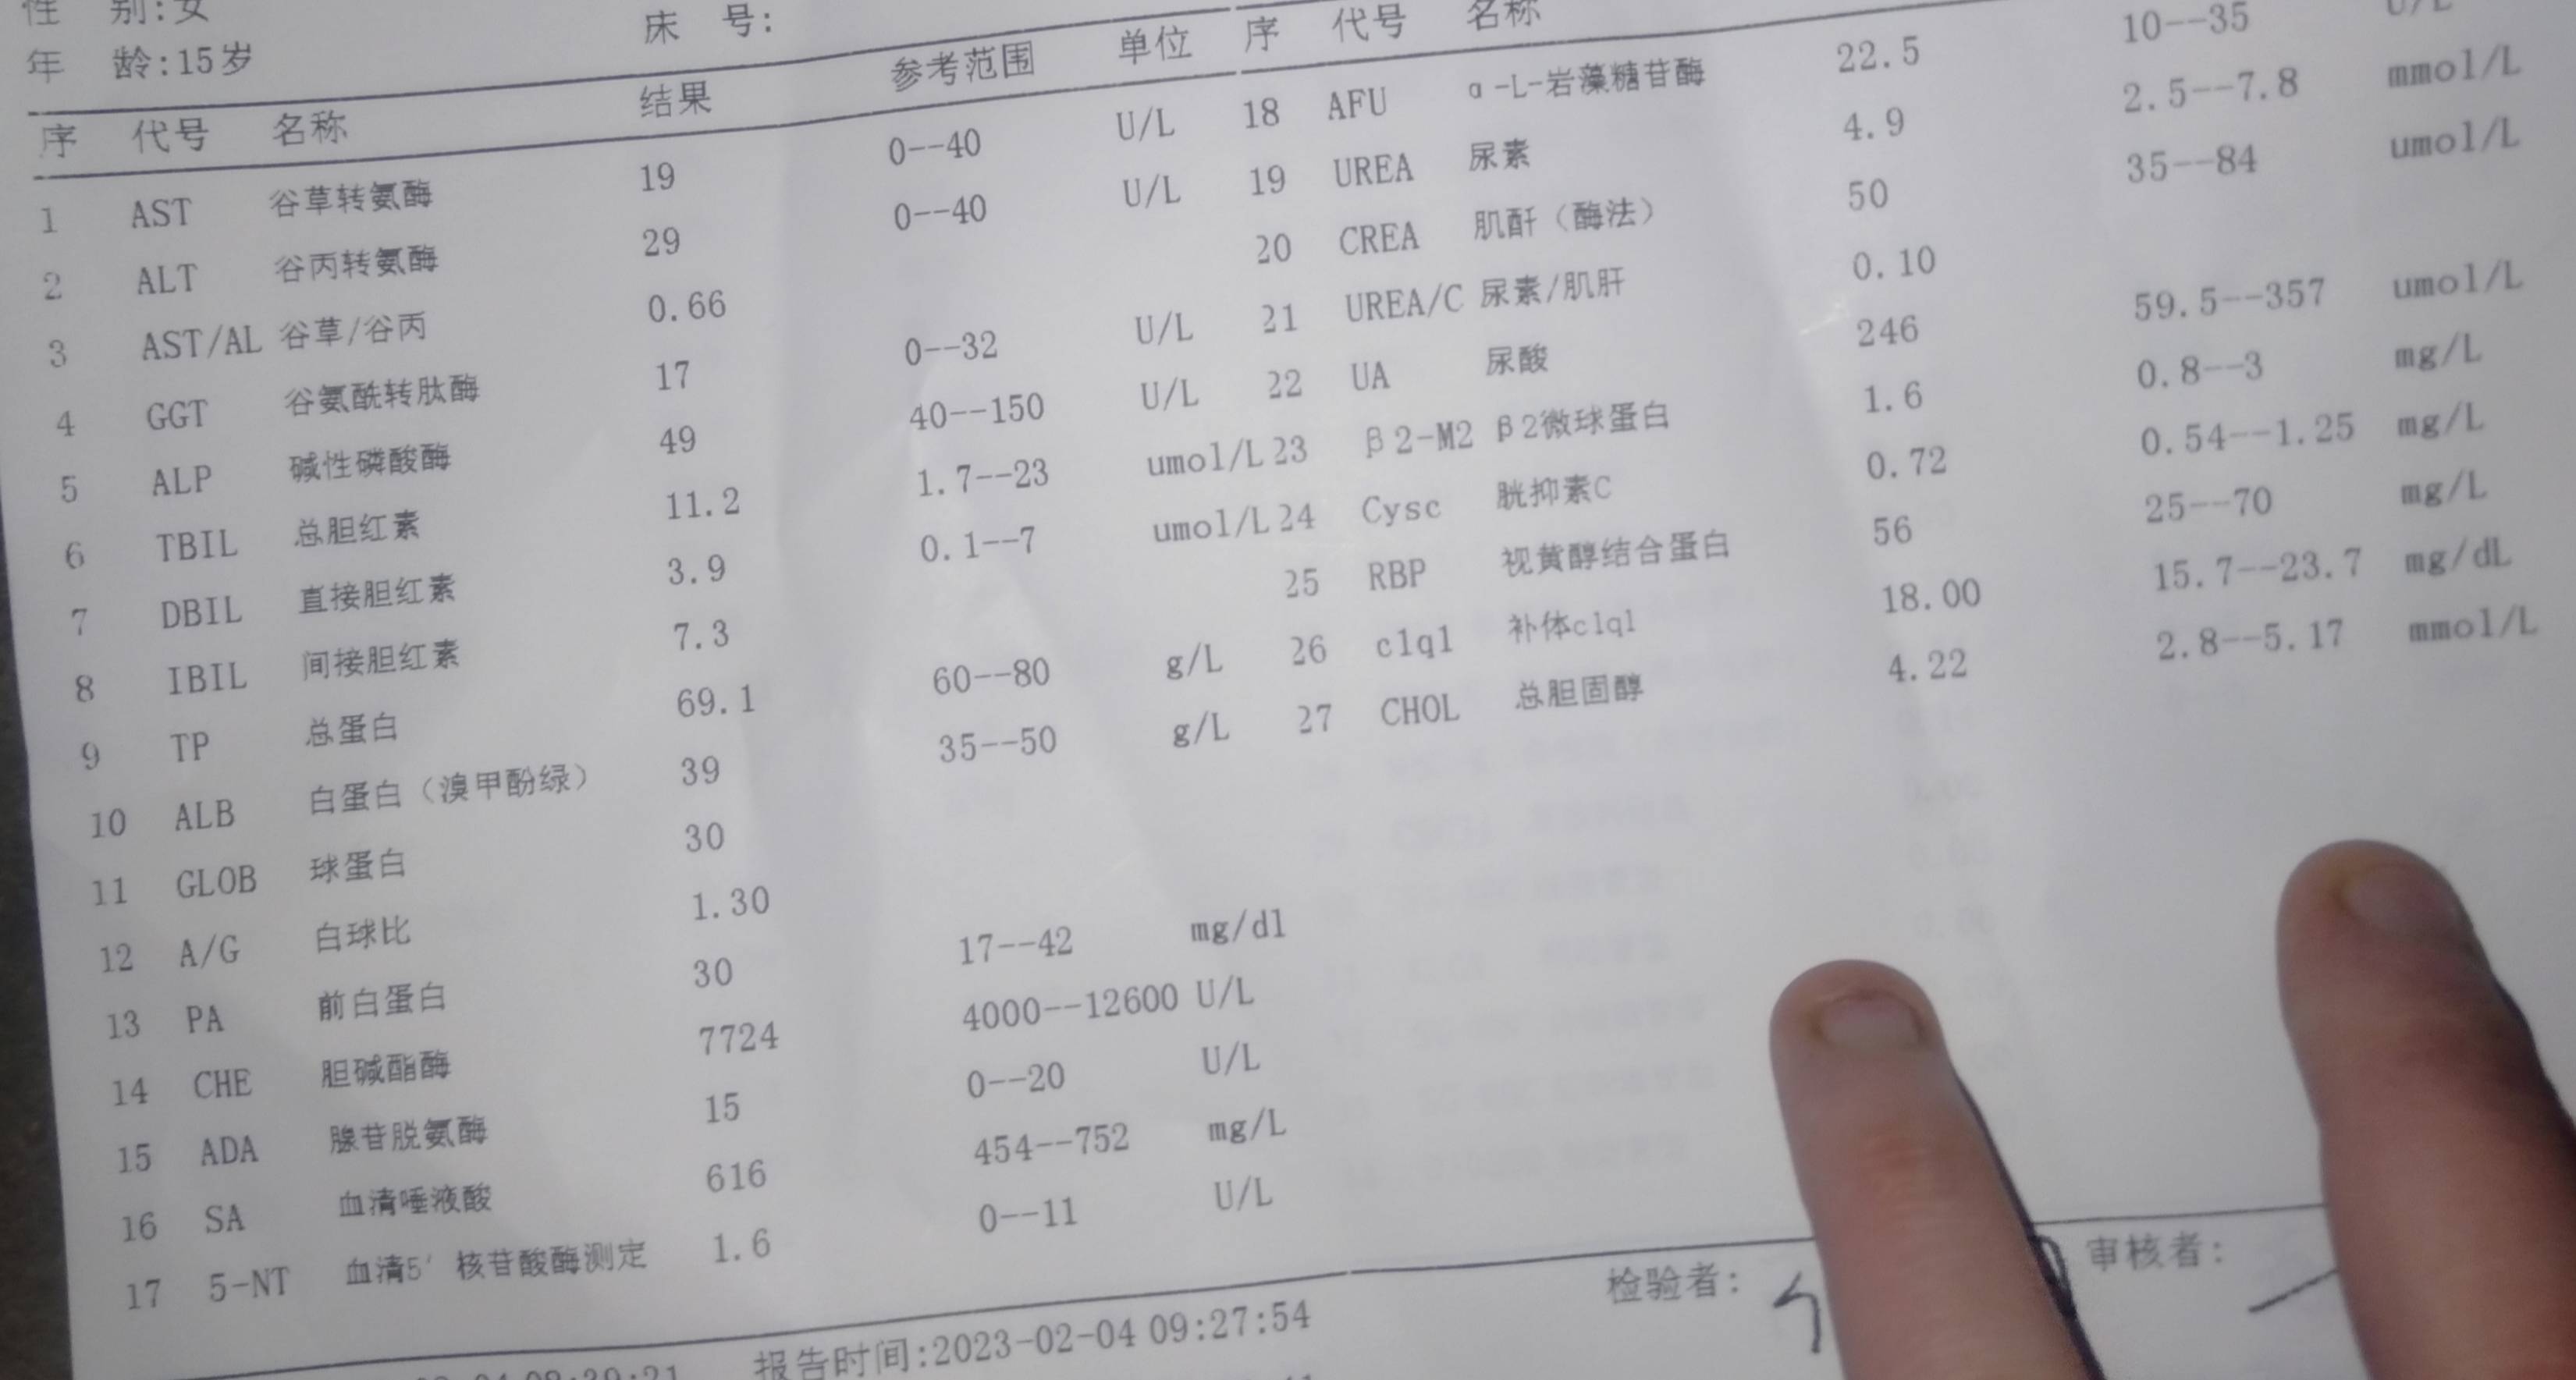 性 别:女
年 龄:15岁 床 号:
序 代号 名称 结果 参考范围 单位 序 代号 名称
1 AST 谷草转氨酶 19 0--40 U/L 18 AFU α-L-岩藻糖苷酶 22.5 10--35 U/L
2 ALT 谷丙转氨酶 29 0--40 U/L 19 UREA 尿素 4.9 2.5--7.8 mmol/L
3 AST/AL 谷草/谷丙 0.66 20 CREA 肌酐（酶法） 50 35--84 umol/L
4 GGT 谷氨酰转肽酶 17 0--32 U/L 21 UREA/C 尿素/肌肝 0.10
5 ALP 碱性磷酸酶 49 40--150 U/L 22 UA 尿酸 246 59.5--357 umol/L
6 TBIL 总胆红素 11.2 1.7--23 umol/L 23 β2-M2 β2微球蛋白 1.6 0.8--3 mg/L
7 DBIL 直接胆红素 3.9 0.1--7 umol/L 24 Cysc 胱抑素C 0.72 0.54--1.25 mg/L
8 IBIL 间接胆红素 7.3 25 RBP 视黄醇结合蛋白 56 25--70 mg/L
9 TP 总蛋白 69.1 60--80 g/L 26 c1q1 补体c1q1 18.00 15.7--23.7 mg/dL
10 ALB 白蛋白（溴甲酚绿） 39 35--50 g/L 27 CHOL 总胆固醇 4.22 2.8--5.17 mmol/L
11 GLOB 球蛋白 30
12 A/G 白球比 1.30
13 PA 前白蛋白 30 17--42 mg/dl
14 CHE 胆碱酯酶 7724 4000--12600 U/L
15 ADA 腺苷脱氨酶 15 0--20 U/L
16 SA 血清唾液酸 616 454--752 mg/L
17 5-NT 血清5'核苷酸酶测定 1.6 0--11 U/L
检验者: 审核者:
报告时间:2023-02-04 09:27:54